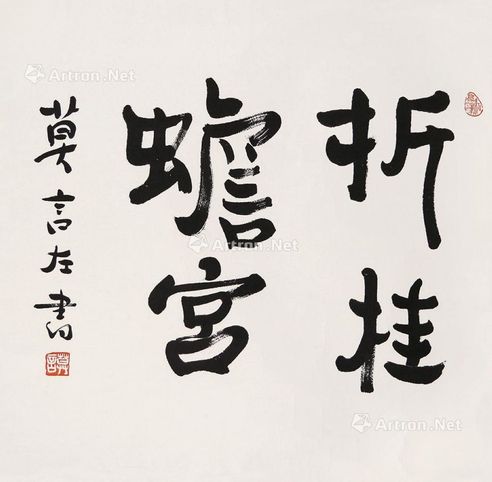 折桂
蟾宫
莫言左书
Artron.Net
Artron.Net
Artron.Net
Artron.Net